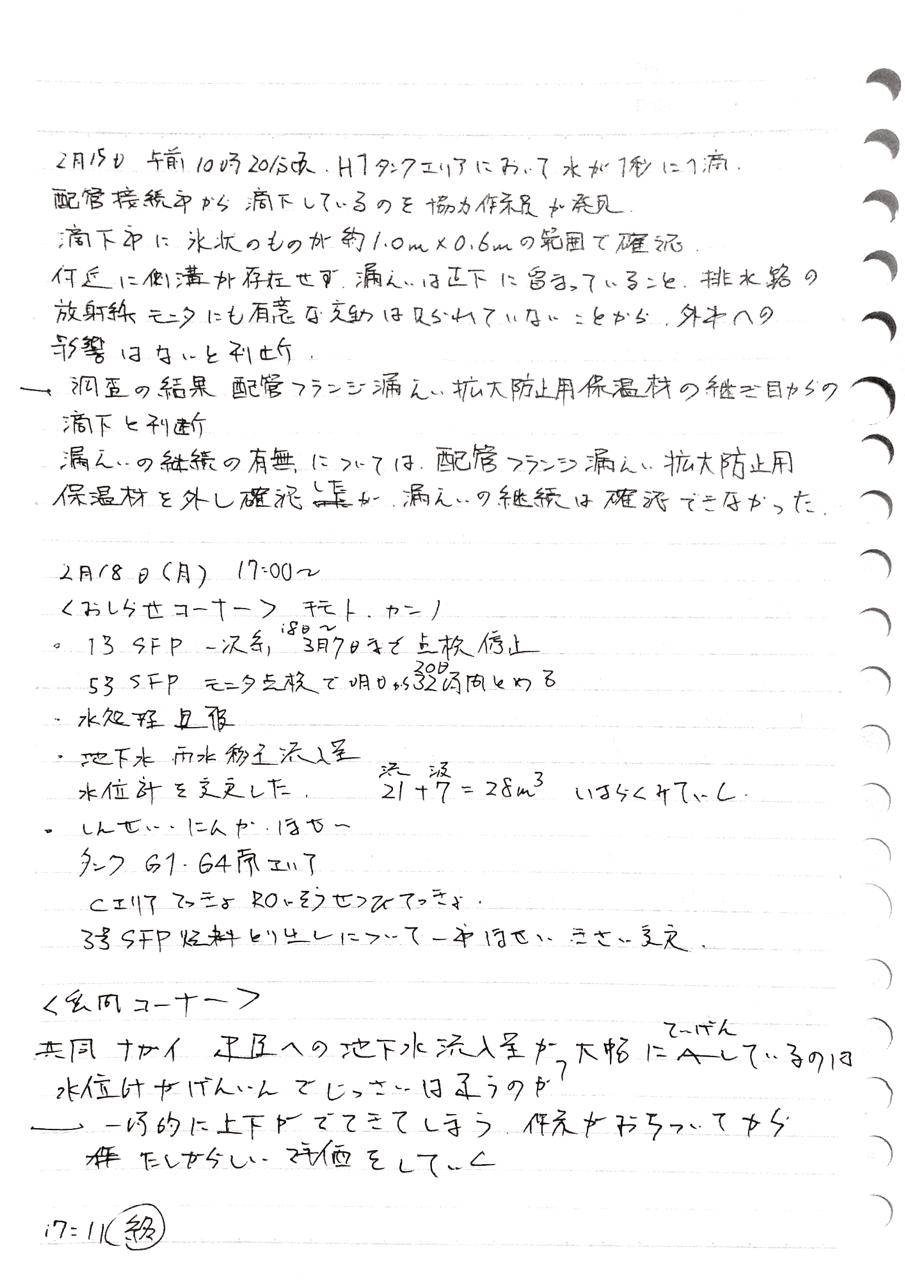 2月15日 午前10時20分頃、H1タンクエリアにおいて水が1秒に1滴、
配管接続部から滴下しているのを協力作業員が発見。
滴下部に氷状のものが約1.0m×0.6mの範囲で確認。
付近に側溝が存在せず、漏えいは直下に留まっていること、排水路の
放射線モニタにも有意な変動は見られていないことから、外部への
影響はないと判断。
→ 調査の結果 配管フランジ漏えい拡大防止用保温材の継ぎ目からの
滴下と判断
漏えいの継続の有無については、配管フランジ漏えい拡大防止用
保温材を外し確認したが、漏えいの継続は確認できなかった。
2月18日(月) 17:00〜
<おしらせコーナー> モト、カンノ
・ 1号SFP 一次系 18日〜3月7日まで点検停止
5号SFP モニタ点検で明日から20日 時間とめる
・水処理
・地下水 雨水移送流入量
水位計を変更した。 21+7=28m³ しばらくみていく。
・ しんせい・にんか・ほせい
タンク G1・G4南エリア
Cエリアてっきょ ROじそうせつびてっきょ。
3号SFP燃料とり出しについて一部ほせい きさい変え。
<質問コーナー>
共同 ナガイ 建屋への地下水流入量が大幅に ていげん しているのは
水位計がげんいんでじっさいは違うのか?
→ 一時的に上下がでてきてしまう、作業がおちついてから
たしからしい評価をしていく
17:11 終